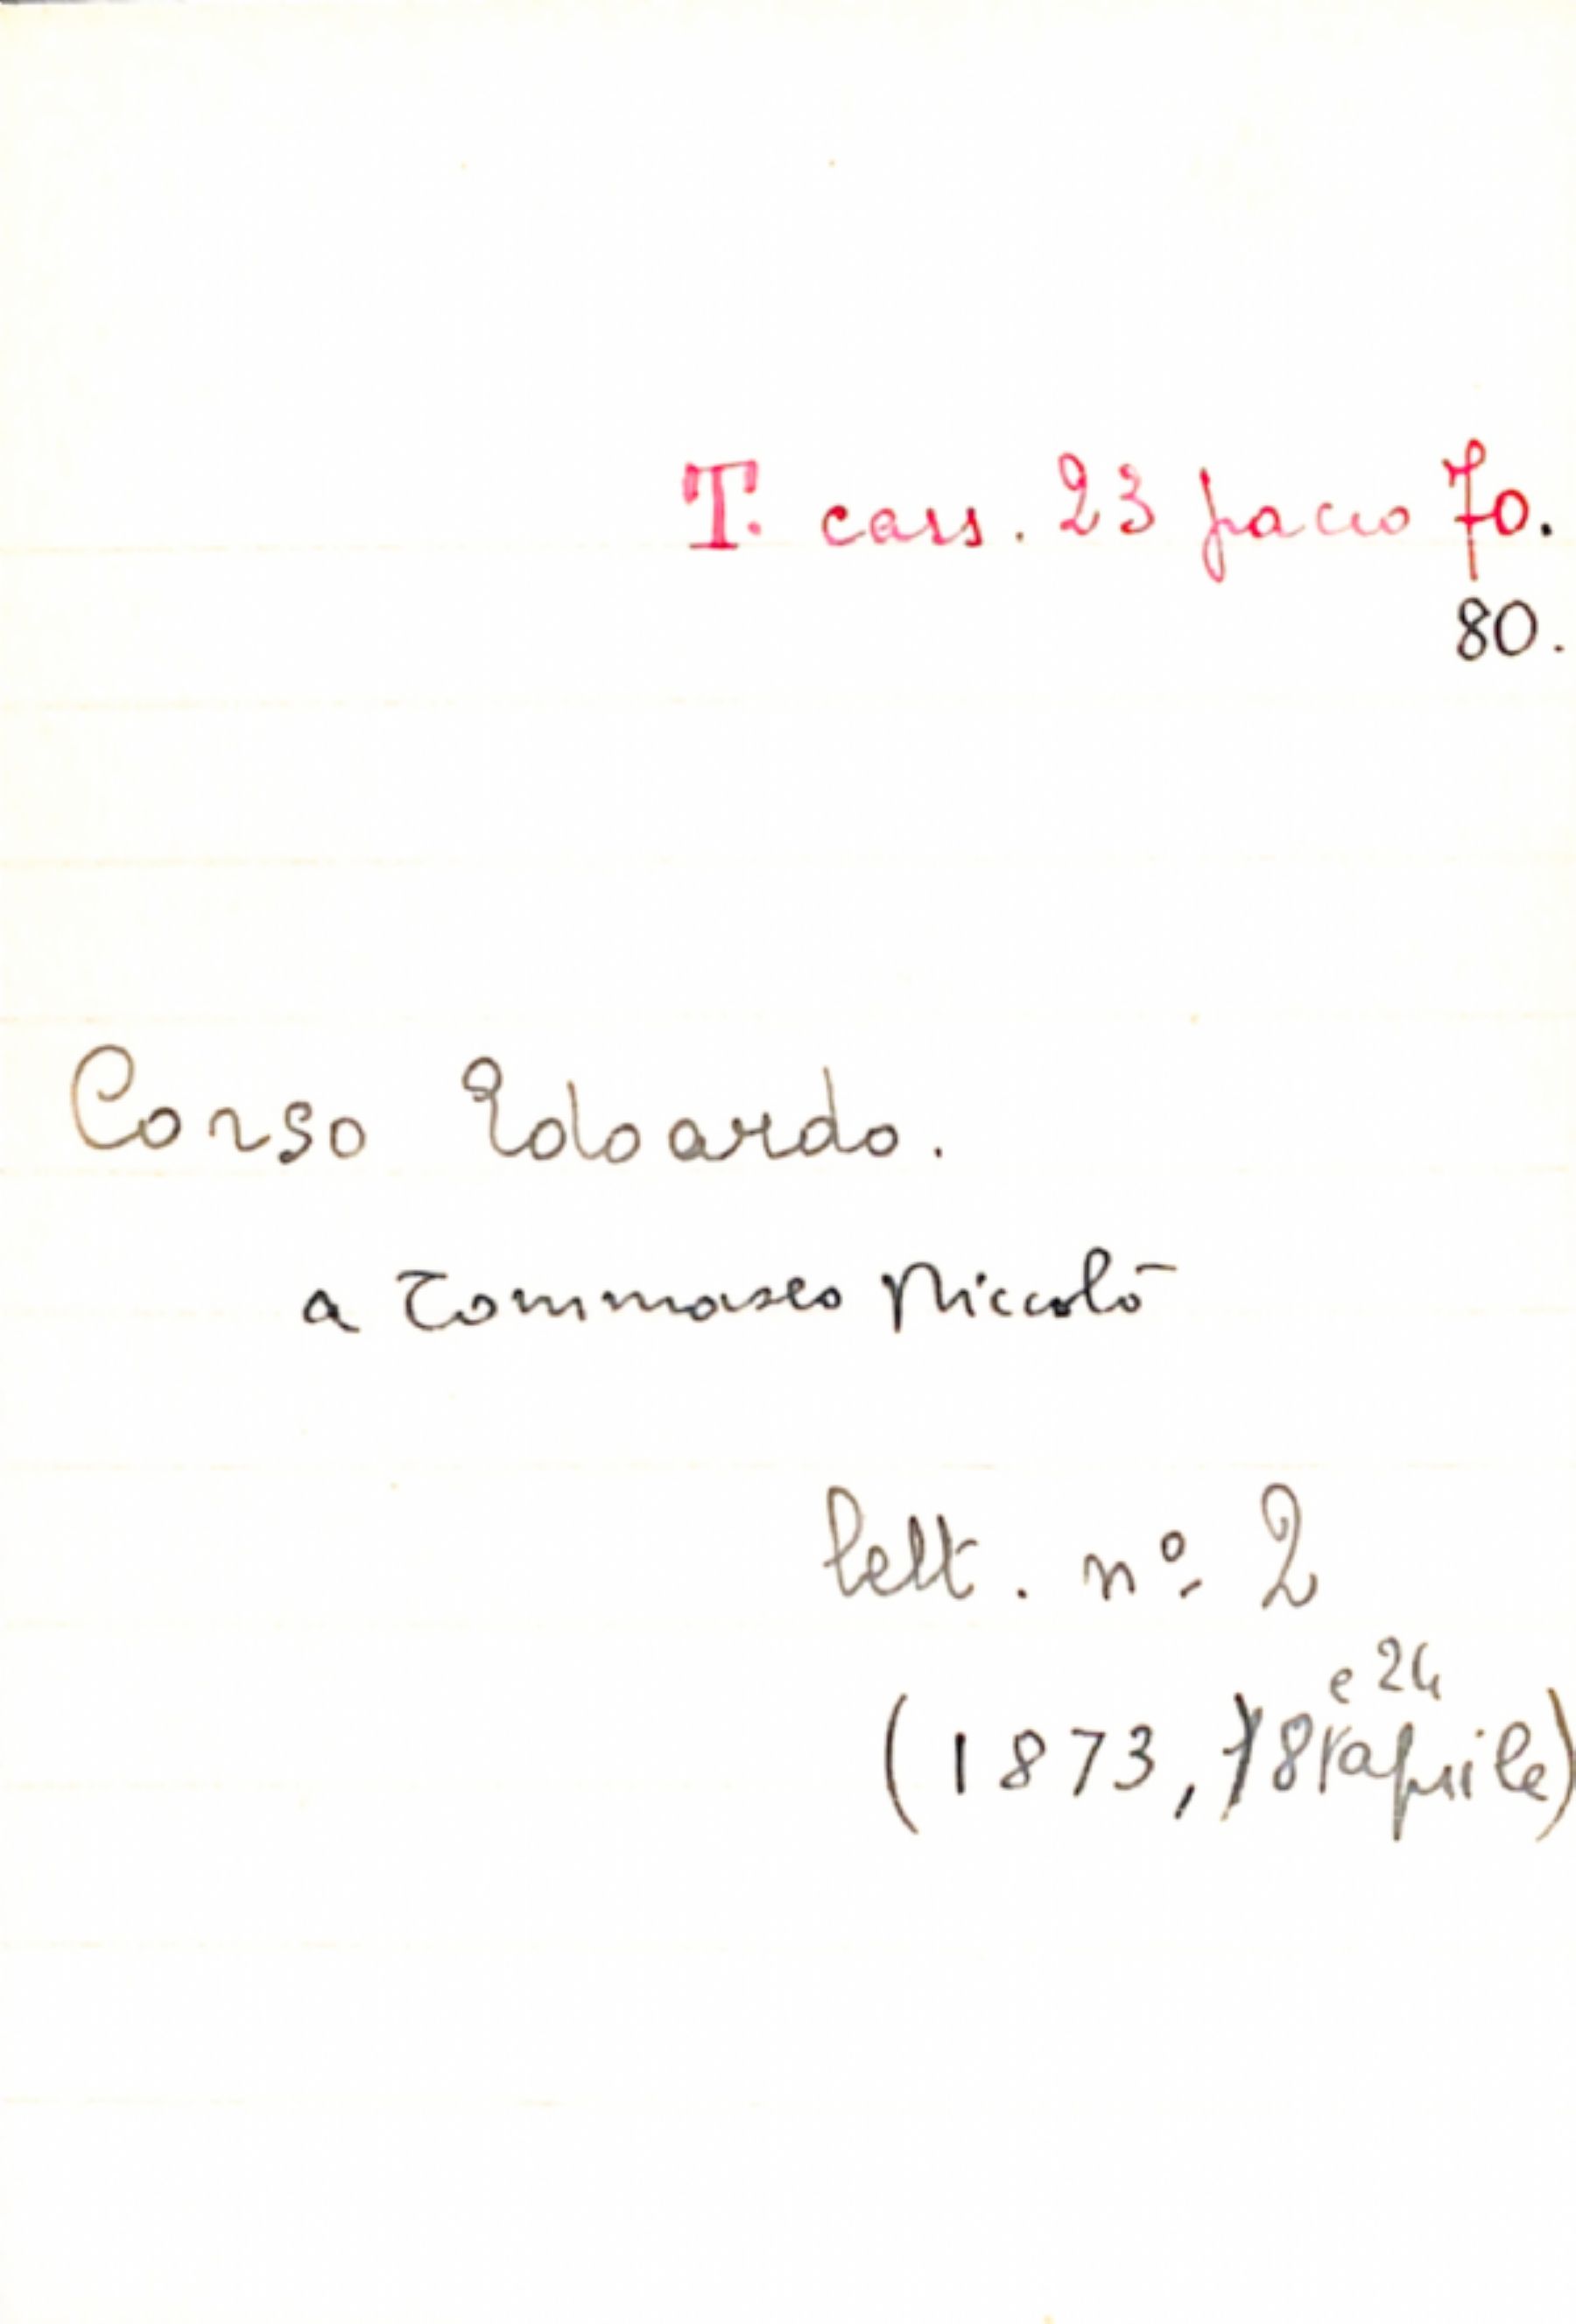 T. cass. 23 pacco 70.
80.
Corso Edoardo.
a Tommaseo Niccolò
lett. nº 2
(1873, 18 e 24 aprile)